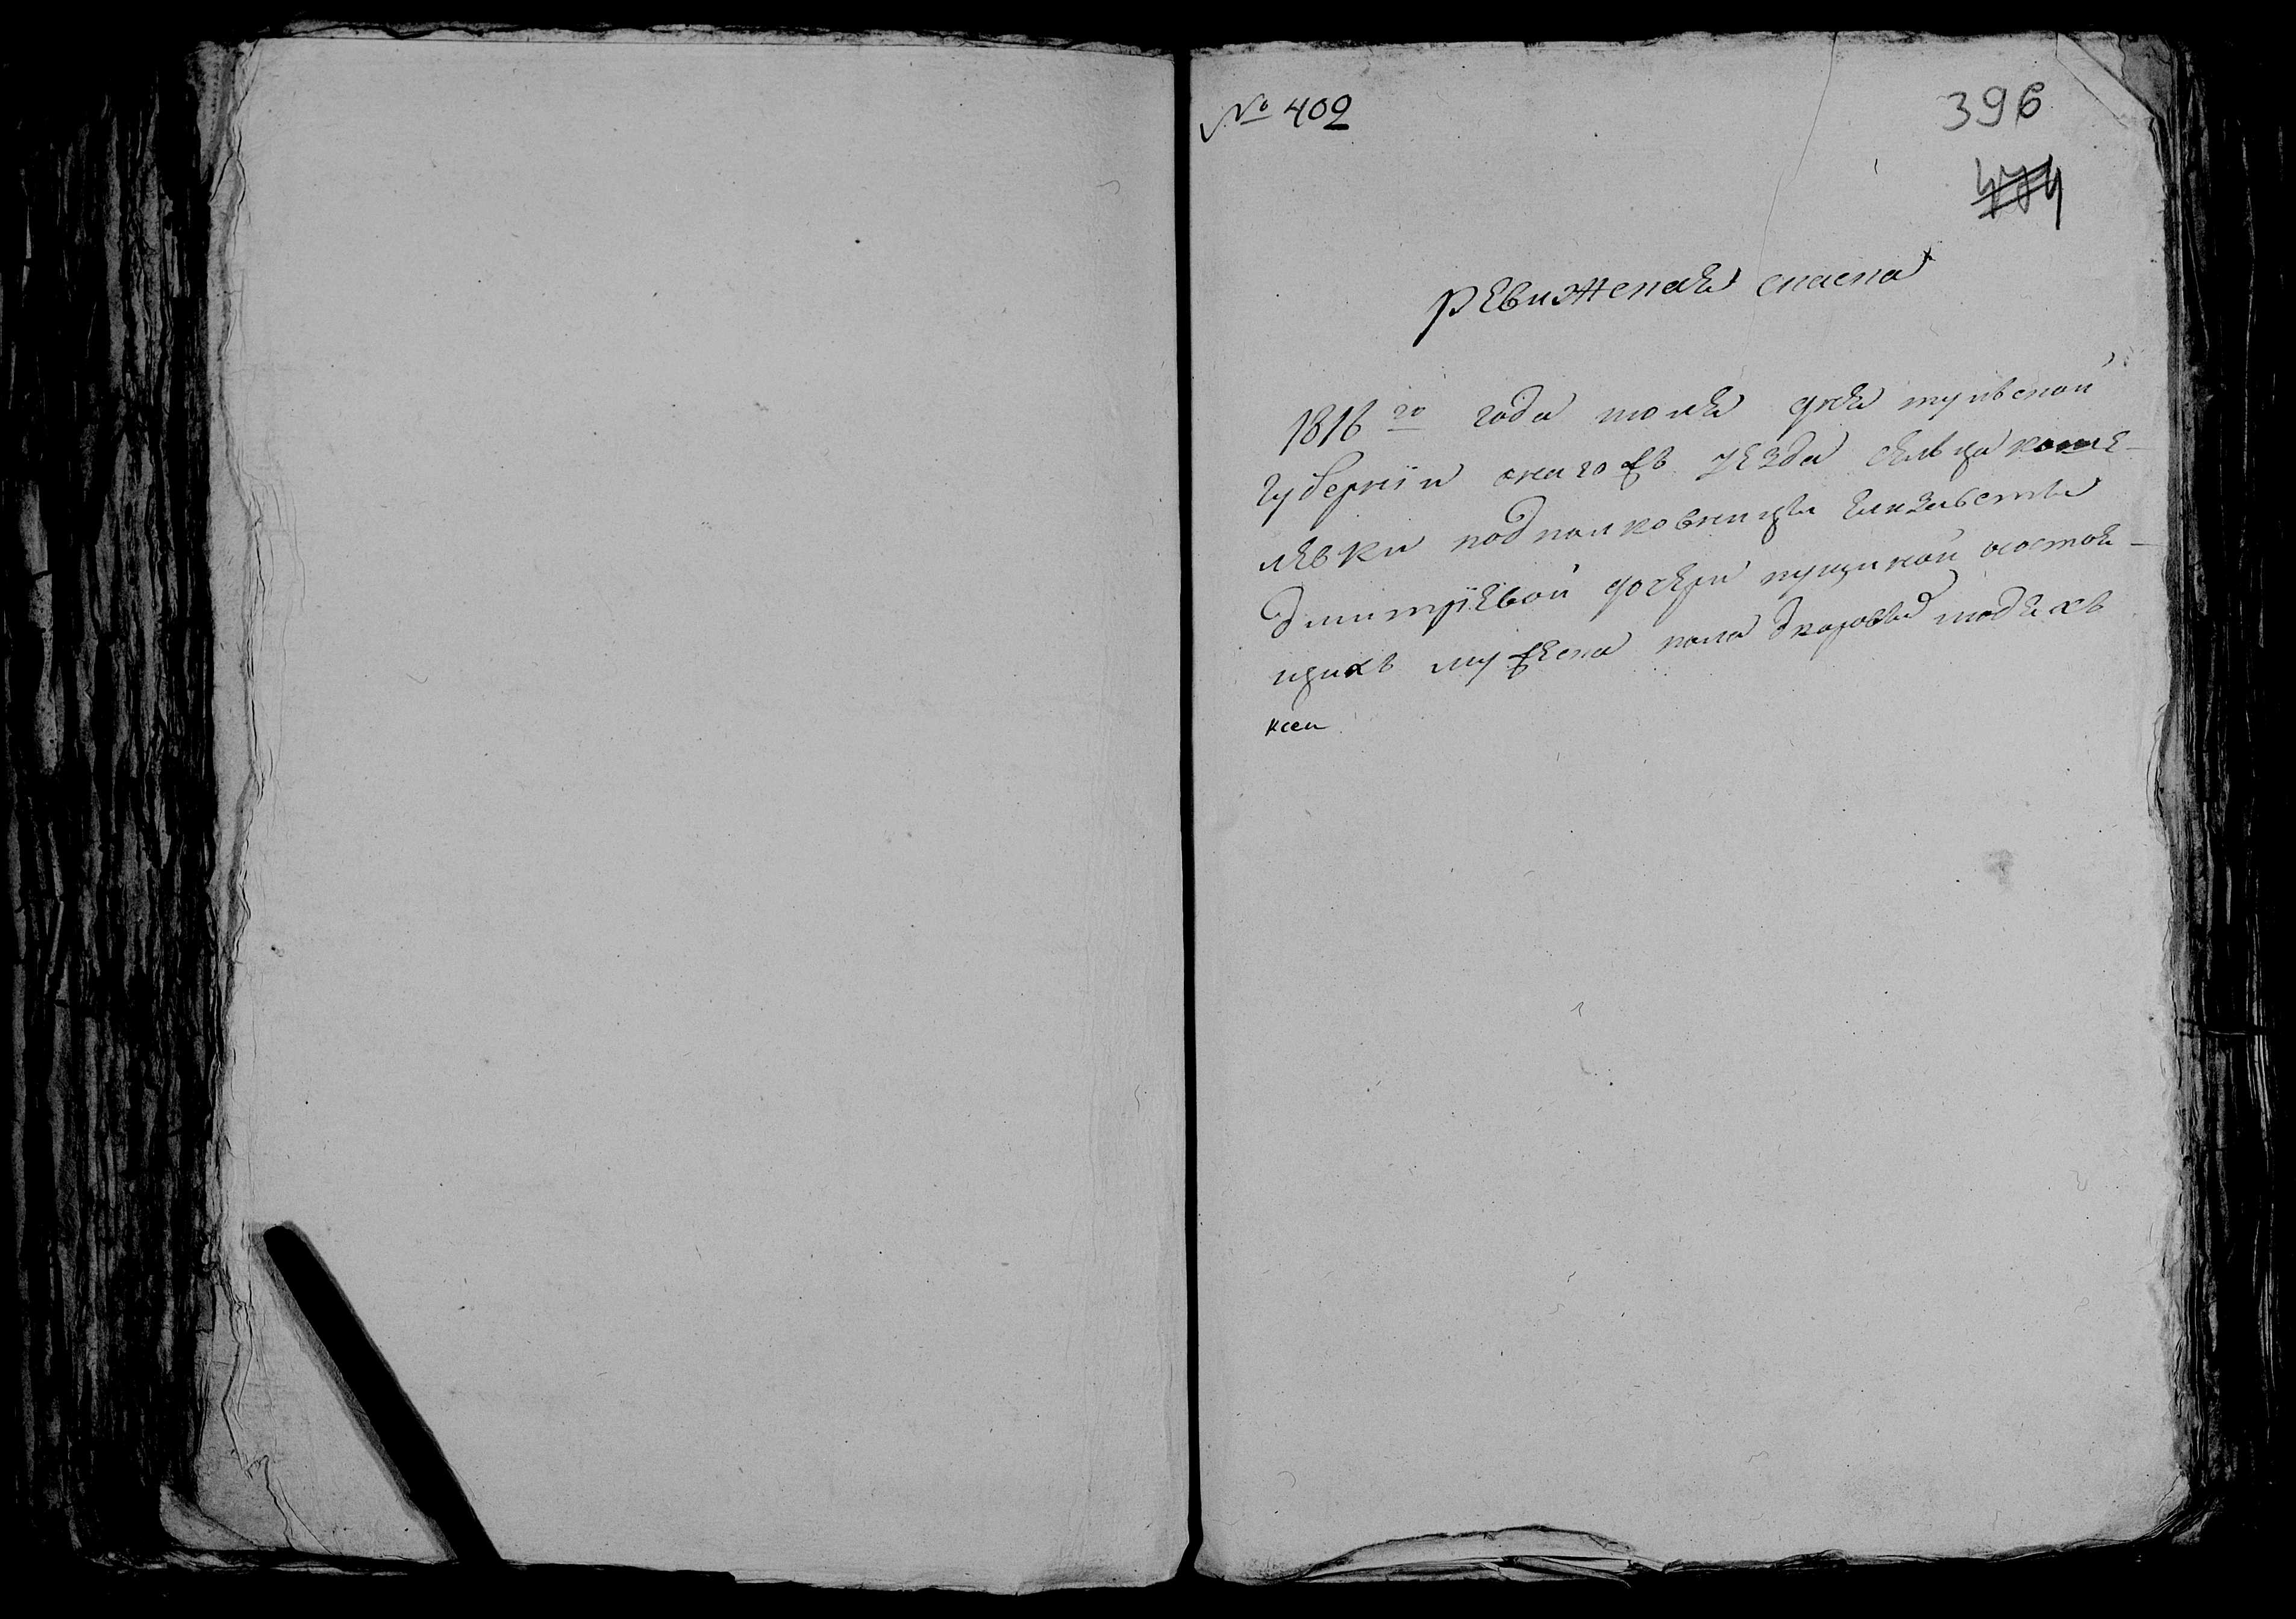 № 402
396
474
ревижская скаска
1816 го года июля дня тульской
губернiи онагожъ уезда сельца коше-
левки подполковницы елизаветы
дмитрiевой дочери пущиной состоя-
щихъ мужеска пола дворовыхъ людехъ